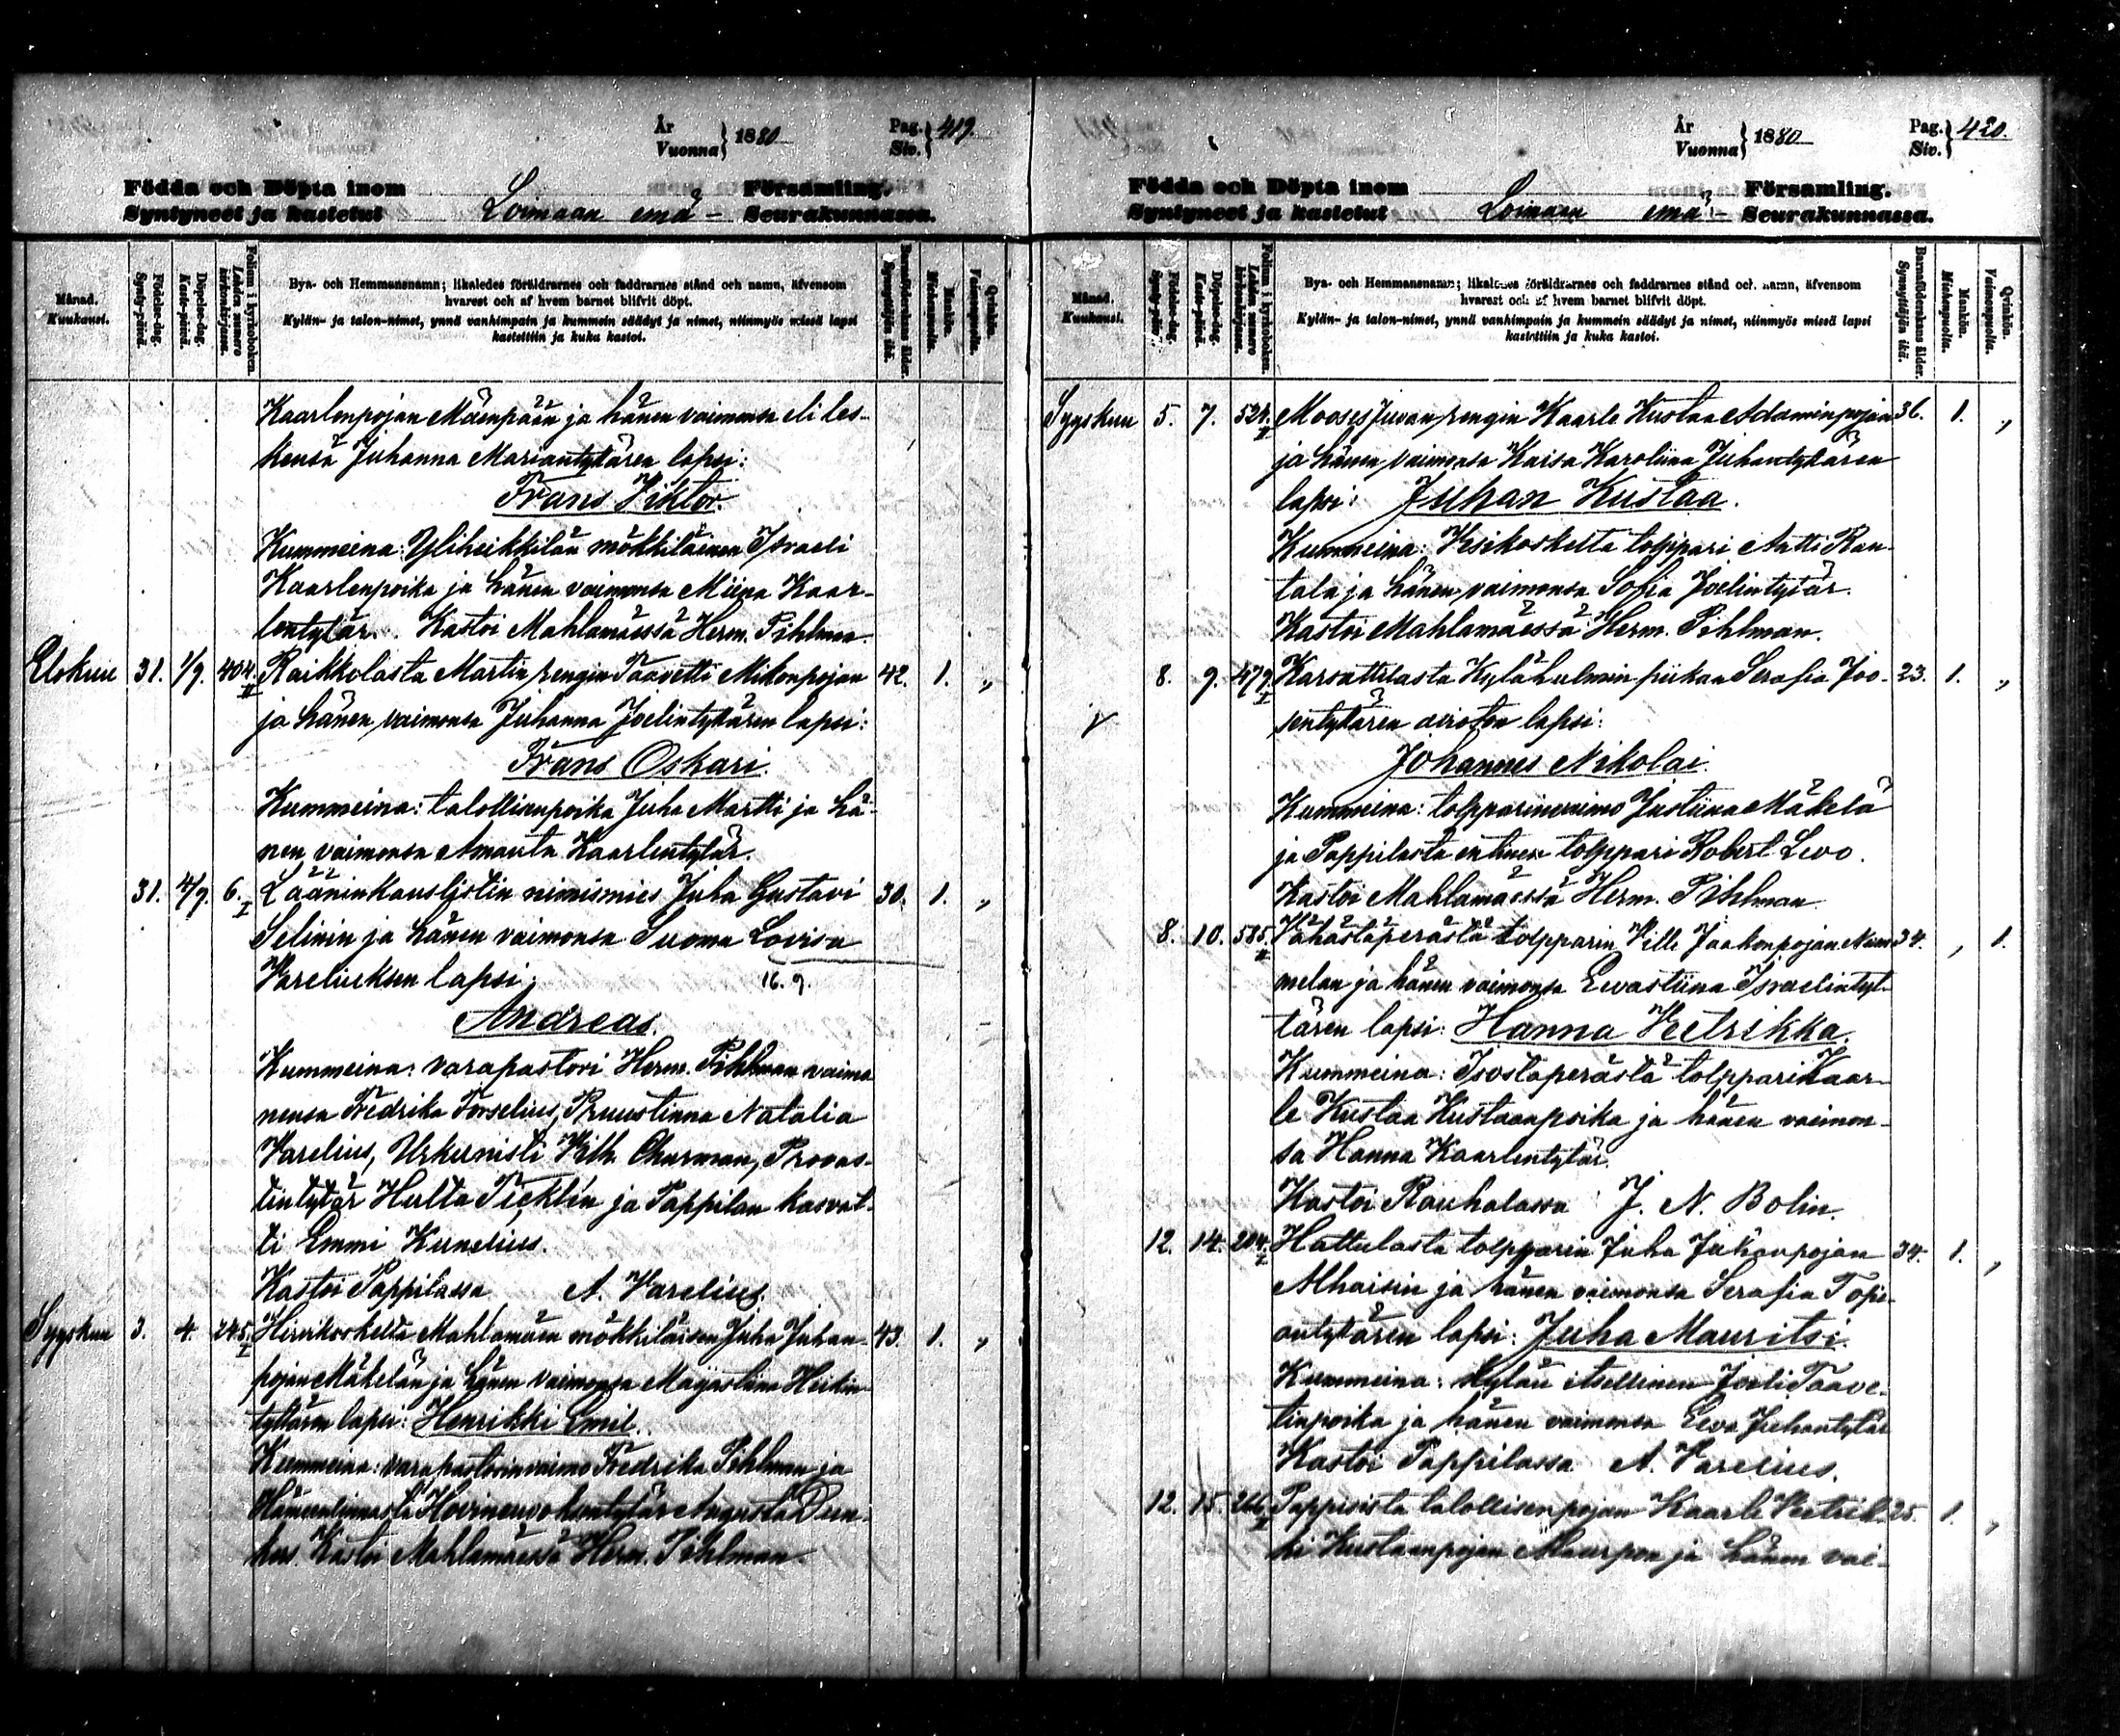 År
Vuonna } 1880
Pag.
Siv. } 419.
Födda och Döpta inom
Syntyneet ja kastetut
Loimaan emä-
Församling.
Seurakunnassa.
Månad.
Kuukausi.
Födelse-dag.
Synty-päivä.
Döpelse-dag.
Kaste-päivä.
Folium i kyrkoboken.
Lehden numero kirkonkirjassa.
Bya- och Hemmansnamn; likaledes föräldrarnes och faddrarnes stånd och namn, äfvensom
hvarest och af hvem barnet blifvit döpt.
Kylän- ja talon-nimet, ynnä vanhimpain ja kummein säädyt ja nimet, niinmyös missä lapsi
kastettiin ja kuka kastoi.
Barnaföderskans ålder.
Synnyttäjän ikä.
Mankön.
Miehenpuolta.
Qvinkön.
Vaimonpuolta.
Kaarlenpojan Mäenpään ja hänen vaimonsa eli les-
kensä Juhanna Mariantyttären lapsi:
Frans Viktor.
Kummeina: Yliheikkilän mökkiläinen Israeli
Kaarlenpoika ja hänen vaimonsa Miina Kaar-
lentytär. Kastoi Mahlamäessä Herm. Pihlman.
Elokuu 31. 1/9. 404. II Raikkolasta Martin rengin Taavetti Mikonpojan 42. 1. „
ja hänen vaimonsa Juhanna Joelintyttären lapsi:
Frans Oskari.
Kummeina: talollisenpoika Juha Martti ja hä-
nen vaimonsa Amanta Kaarlentytär.
31. 4/9. 6. I Lääninkanslistin nimismies Juha Gustavi 30. 1. „
Selinin ja hänen vaimonsa Suoma Lovisa
Vareliuksen lapsi: 16. 9.
Andreas.
Kummeina: varapastori Herm. Pihlman vaimo
nensa Fredrika Forselius, Ruustinna Natalia
Varelius, Urkunisti Vilh. Öhurman, Provas-
tintytär Hulta Ticklén ja Pappilan kasvat-
ti Emmi Kunelius.
Kastoi Pappilassa A. Varelius.
Syyskuu 3. 4. 245. I Hirvikoskelta Mahlamäen mökkiläisen Juha Juhan- 43. 1. „
pojan Mäkelän ja hänen vaimonsa Majastiina Heikin
tyttären lapsi: Henrikki Emil.
Kummeina: varapastorinvaimo Fredrika Pihlman ja
Hämeenlinnasta Hovineuvoksentytär Augusta
Kastoi Mahlamäessä Herm. Pihlman.
År
Vuonna } 1880
Pag.
Siv. } 420.
Födda och Döpta inom
Syntyneet ja kastetut
Loimaan emä-
Församling.
Seurakunnassa.
Månad.
Kuukausi.
Födelse-dag.
Synty-päivä.
Döpelse-dag.
Kaste-päivä.
Folium i kyrkoboken.
Lehden numero kirkonkirjassa.
Bya- och Hemmansnamn; likaledes föräldrarnes och faddrarnes stånd och namn, äfvensom
hvarest och af hvem barnet blifvit döpt.
Kylän- ja talon-nimet, ynnä vanhimpain ja kummein säädyt ja nimet, niinmyös missä lapsi
kastettiin ja kuka kastoi.
Barnaföderskans ålder.
Synnyttäjän ikä.
Mankön.
Miehenpuolta.
Qvinkön.
Vaimonpuolta.
Syyskuu 5. 7. 524. II Mooses Juvan rengin Kaarle Kustaa Adaminpojan 36. 1. „
ja hänen vaimonsa Kaisa Karoliina Juhantyttären
lapsi: Juhan Kustaa.
Kummeina: Vesikoskelta tolppari Antti Ran-
tala ja hänen vaimonsa Sofia Joelintytär.
Kastoi Mahlamäessä Herm. Pihlman.
8. 9. 479. I Karsattilasta Kylähulmin piikan Serafia Joo- 23. 1. „
sentyttären avioton lapsi:
Johannes Nikolai.
Kummeina: tolpparinvaimo Justiina Mäkelä
ja Pappilasta entinen tolppari Robert Levo.
Kastoi Mahlamäessä Herm. Pihlman.
8. 10. 585. II Vähästäperästä tolpparin Ville Jaakonpojan Num- 34. „ 1.
melan ja hänen vaimonsa Eevastiina Israelintyt-
tären lapsi: Hanna Veetrikka.
Kummeina: Isostaperästä tolppari Kaar-
le Kustaa Kustaanpoika ja hänen vaimon-
sa Hanna Kaarlentytär.
Kastoi Rauhalassa J. N. Bolin.
12. 14. 204. I Hattulasta tolpparin Juha Juhanpojan 34. 1. „
Alhaisin ja hänen vaimonsa Serafia Topi-
antyttären lapsi: Juha Mauritsi.
Kummeina: kylän itsellinen Joeli Taave-
tinpoika ja hänen vaimonsa Eeva Juhantytär
Kastoi Pappilassa A. Varelius.
12. 15. 266. I Pappisista talollisenpojan Kaarle Veetrik- 25. 1. „
ki Kustaanpojan ja hänen vai-